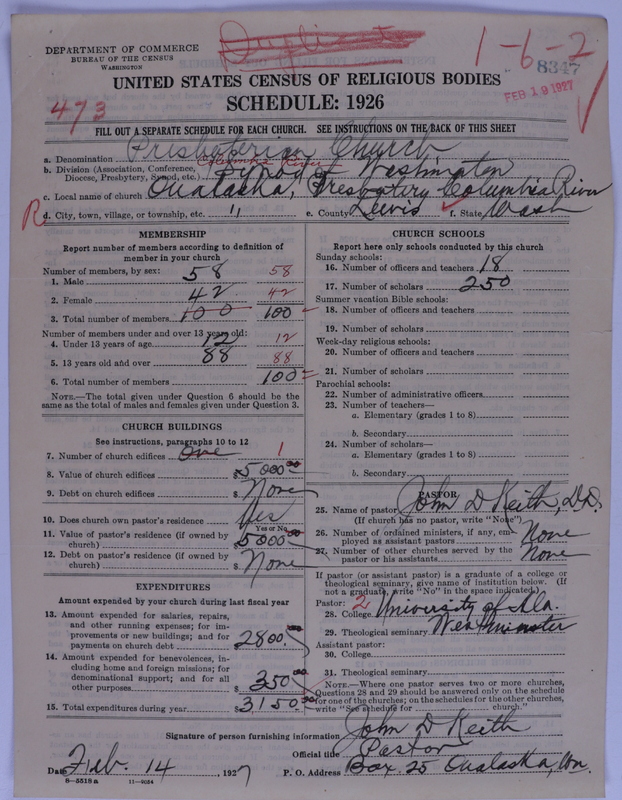 DEPARTMENT OF COMMERCE
BUREAU OF THE CENSUS
WASHINGTON
Duplicate
1-6-2
8347
FEB 19 1927
473
UNITED STATES CENSUS OF RELIGIOUS BODIES
SCHEDULE: 1926
FILL OUT A SEPARATE SCHEDULE FOR EACH CHURCH. SEE INSTRUCTIONS ON THE BACK OF THIS SHEET
a. Denomination Presbyterian Church
b. Division (Association, Conference, Diocese, Presbytery, Synod, etc.) Columbia River Synod of Washington
c. Local name of church Onalaska, Presbytery Columbia River
R
d. City, town, village, or township, etc. " e. County Lewis f. State Wash
MEMBERSHIP
Report number of members according to definition of
member in your church
Number of members, by sex:
1. Male 58 58
2. Female 42 42
3. Total number of members 100 100
Number of members under and over 13 years old:
4. Under 13 years of age 12 12
5. 13 years old and over 88 88
6. Total number of members 100
NOTE.—The total given under Question 6 should be the
same as the total of males and females given under Question 3.
CHURCH BUILDINGS
See instructions, paragraphs 10 to 12
7. Number of church edifices One 1
8. Value of church edifices $ 5000.00
9. Debt on church edifices $ None
10. Does church own pastor's residence Yes
Yes or No
11. Value of pastor's residence (if owned by
church) $ 5000.00
12. Debt on pastor's residence (if owned by
church) $ None
EXPENDITURES
Amount expended by your church during last fiscal year
13. Amount expended for salaries, repairs,
and other running expenses; for im-
provements or new buildings; and for
payments on church debt $ 2800.00
14. Amount expended for benevolences, in-
cluding home and foreign missions; for
denominational support; and for all
other purposes $ 350.00
15. Total expenditures during year $ 3150.00
CHURCH SCHOOLS
Report here only schools conducted by this church
Sunday schools:
16. Number of officers and teachers 18
17. Number of scholars 250
Summer vacation Bible schools:
18. Number of officers and teachers
19. Number of scholars
Week-day religious schools:
20. Number of officers and teachers
21. Number of scholars
Parochial schools:
22. Number of administrative officers
23. Number of teachers—
a. Elementary (grades 1 to 8)
b. Secondary
24. Number of scholars—
a. Elementary (grades 1 to 8)
b. Secondary
PASTOR
25. Name of pastor John D Keith, D.D.
(If church has no pastor, write "None")
26. Number of ordained ministers, if any, em-
ployed as assistant pastors None
27. Number of other churches served by the
pastor or his assistants None
If pastor (or assistant pastor) is a graduate of a college or
theological seminary, give name of institution below. (If
not a graduate, write "No" in the space indicated.)
Pastor: 2
28. College University of Ala.
29. Theological seminary Westminster
Assistant pastor:
30. College
31. Theological seminary
NOTE.—Where one pastor serves two or more churches,
Questions 28 and 29 should be answered only on the schedule
for one of the churches; on the schedules for the other churches,
write "See schedule for church."
Signature of person furnishing information John D Keith
Official title Pastor
Date Feb. 14, 1927 P. O. Address Box 25 Onalaska, Wn.
8—5518 a 11—9054